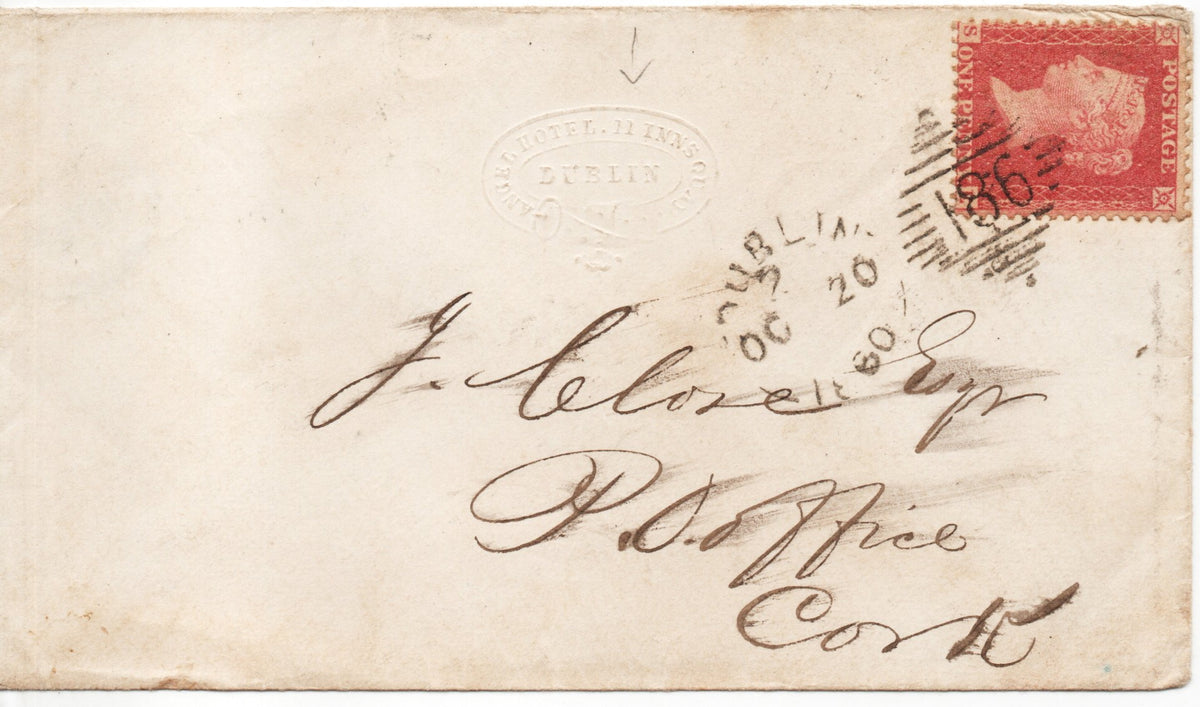 POSTAGE
S ONE PENNY
186
ANGEL HOTEL. 11 INNS QUAY
DUBLIN
DUBLIN
OC 20
60
J. Close Esqr
P. Office
Cork